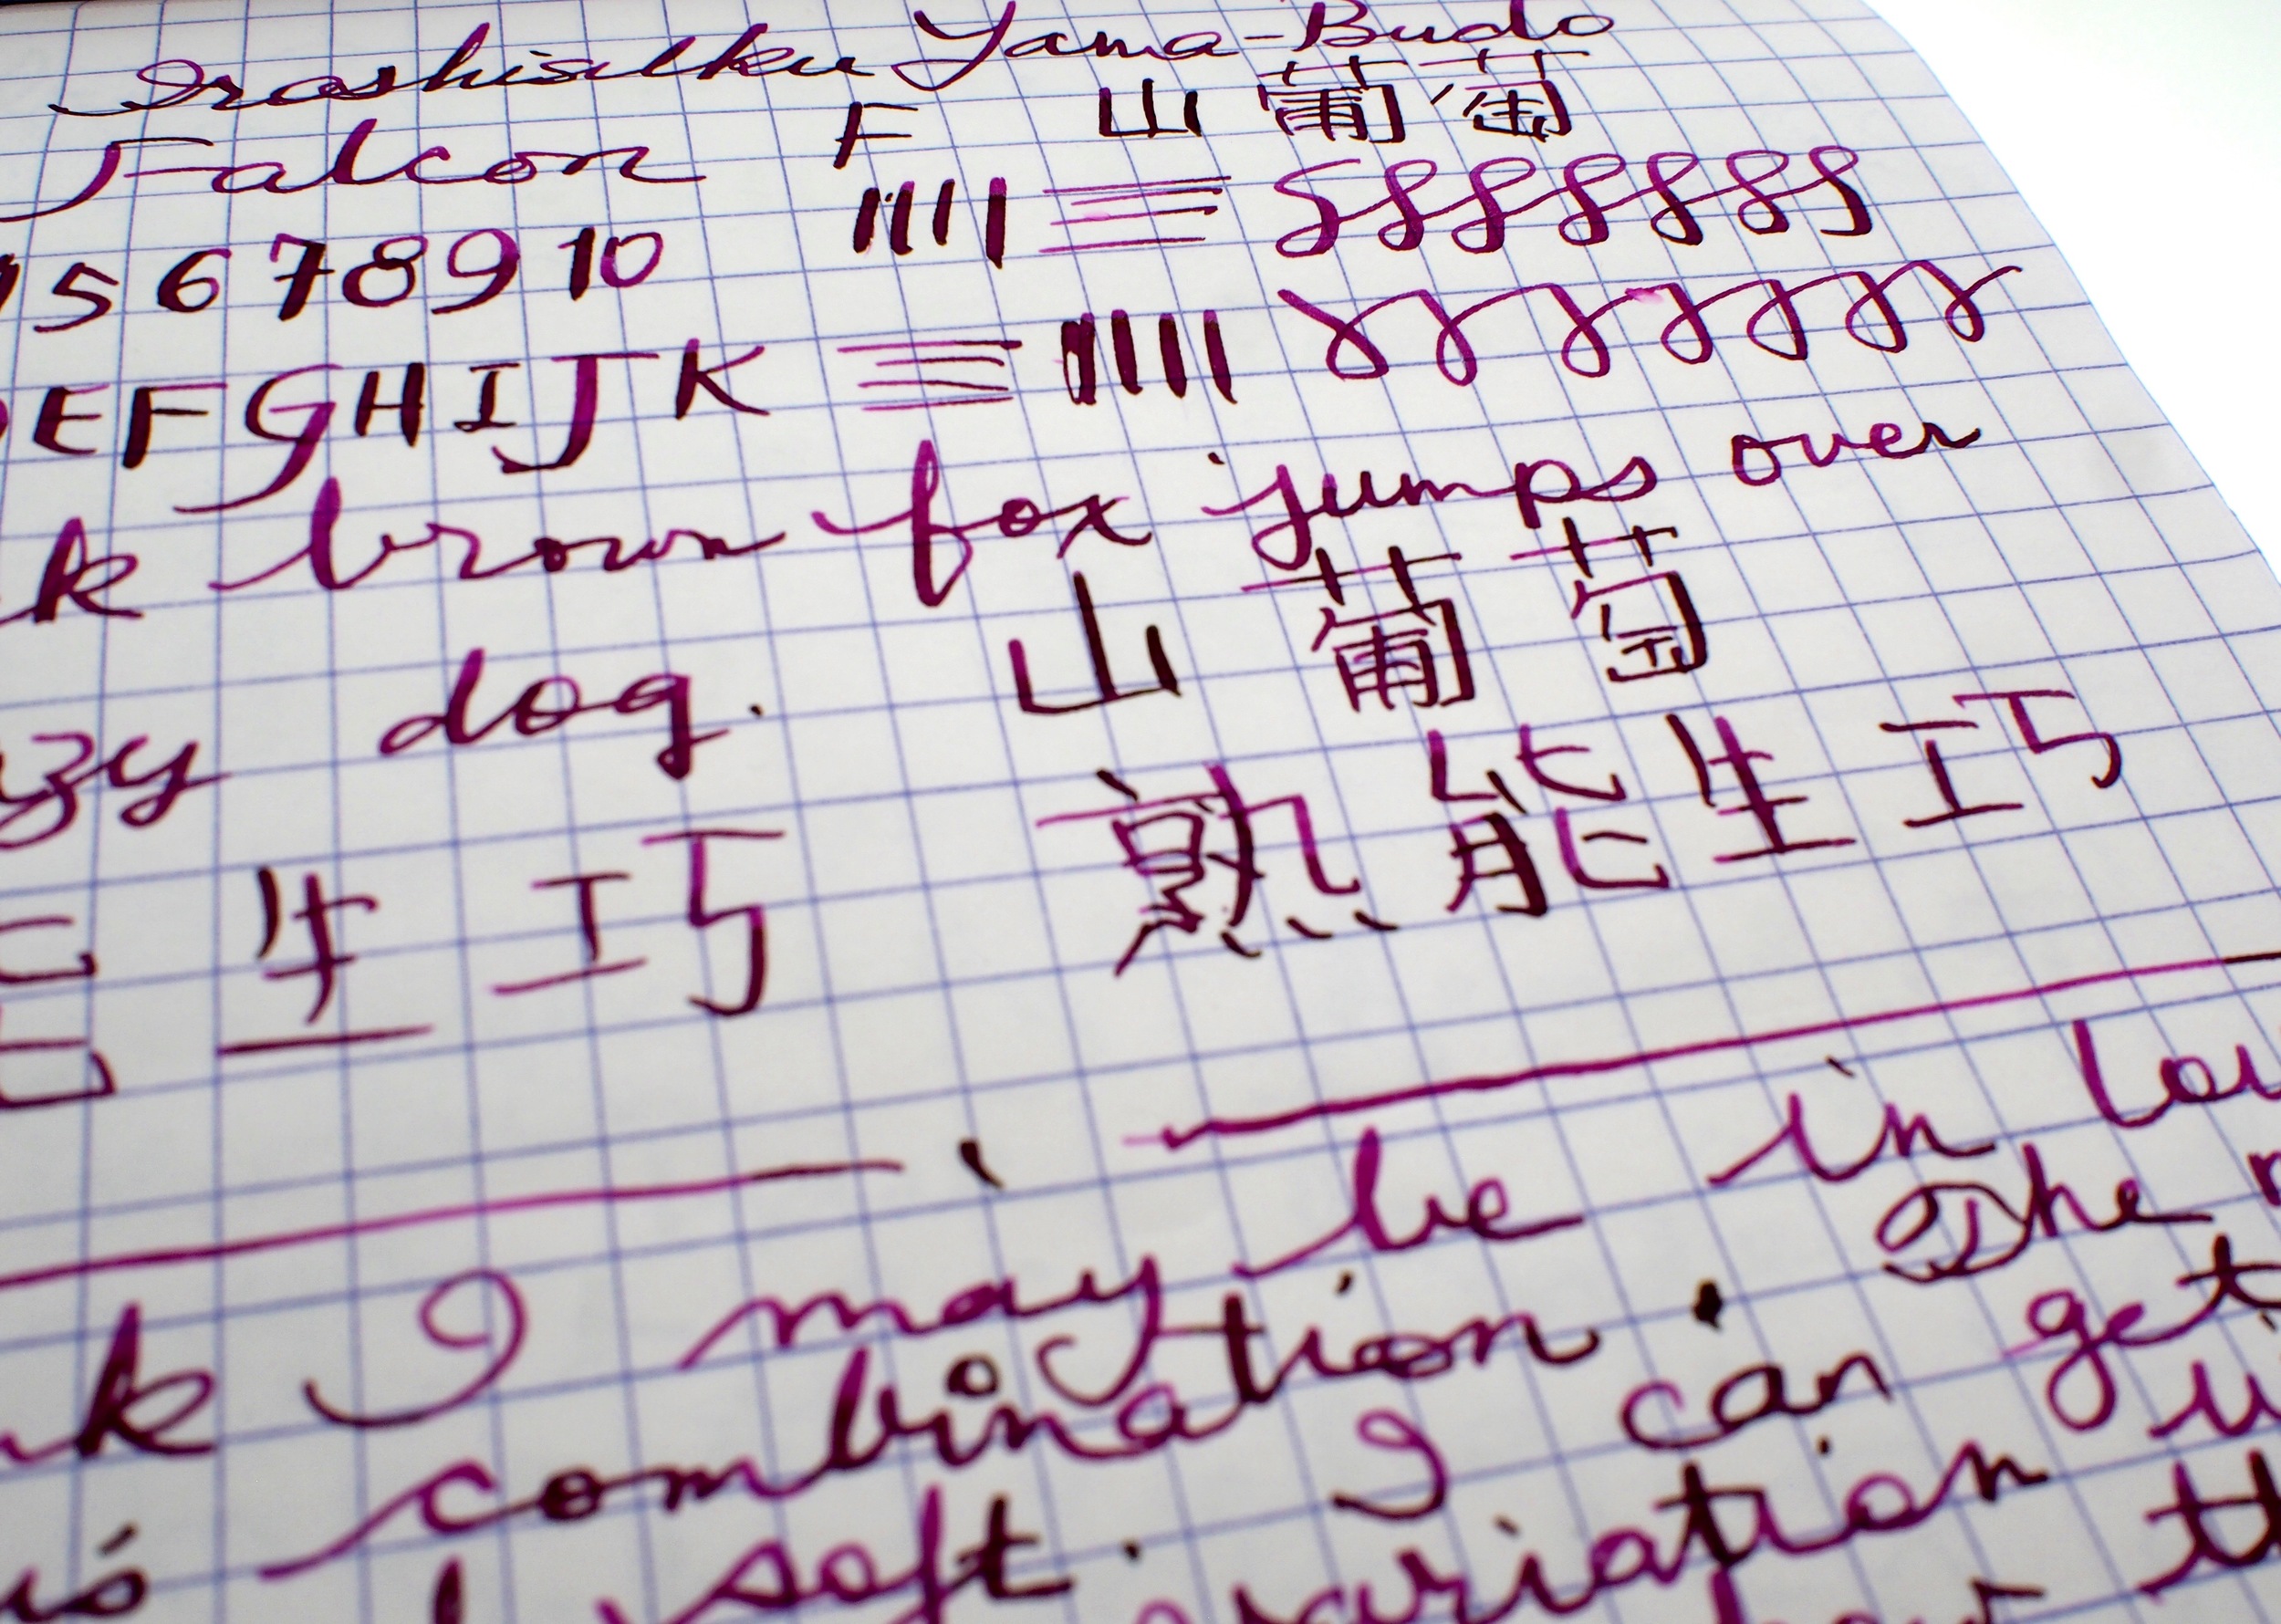 Iroshizuku Yama-Budo
Falcon F 山 葡 萄
5 6 7 8 9 10
E F G H I J K
k brown fox jumps over
zy dog. 山 葡 萄
生 巧 熟 能 生 巧
I may be in
combination. The
soft. I can get
variation